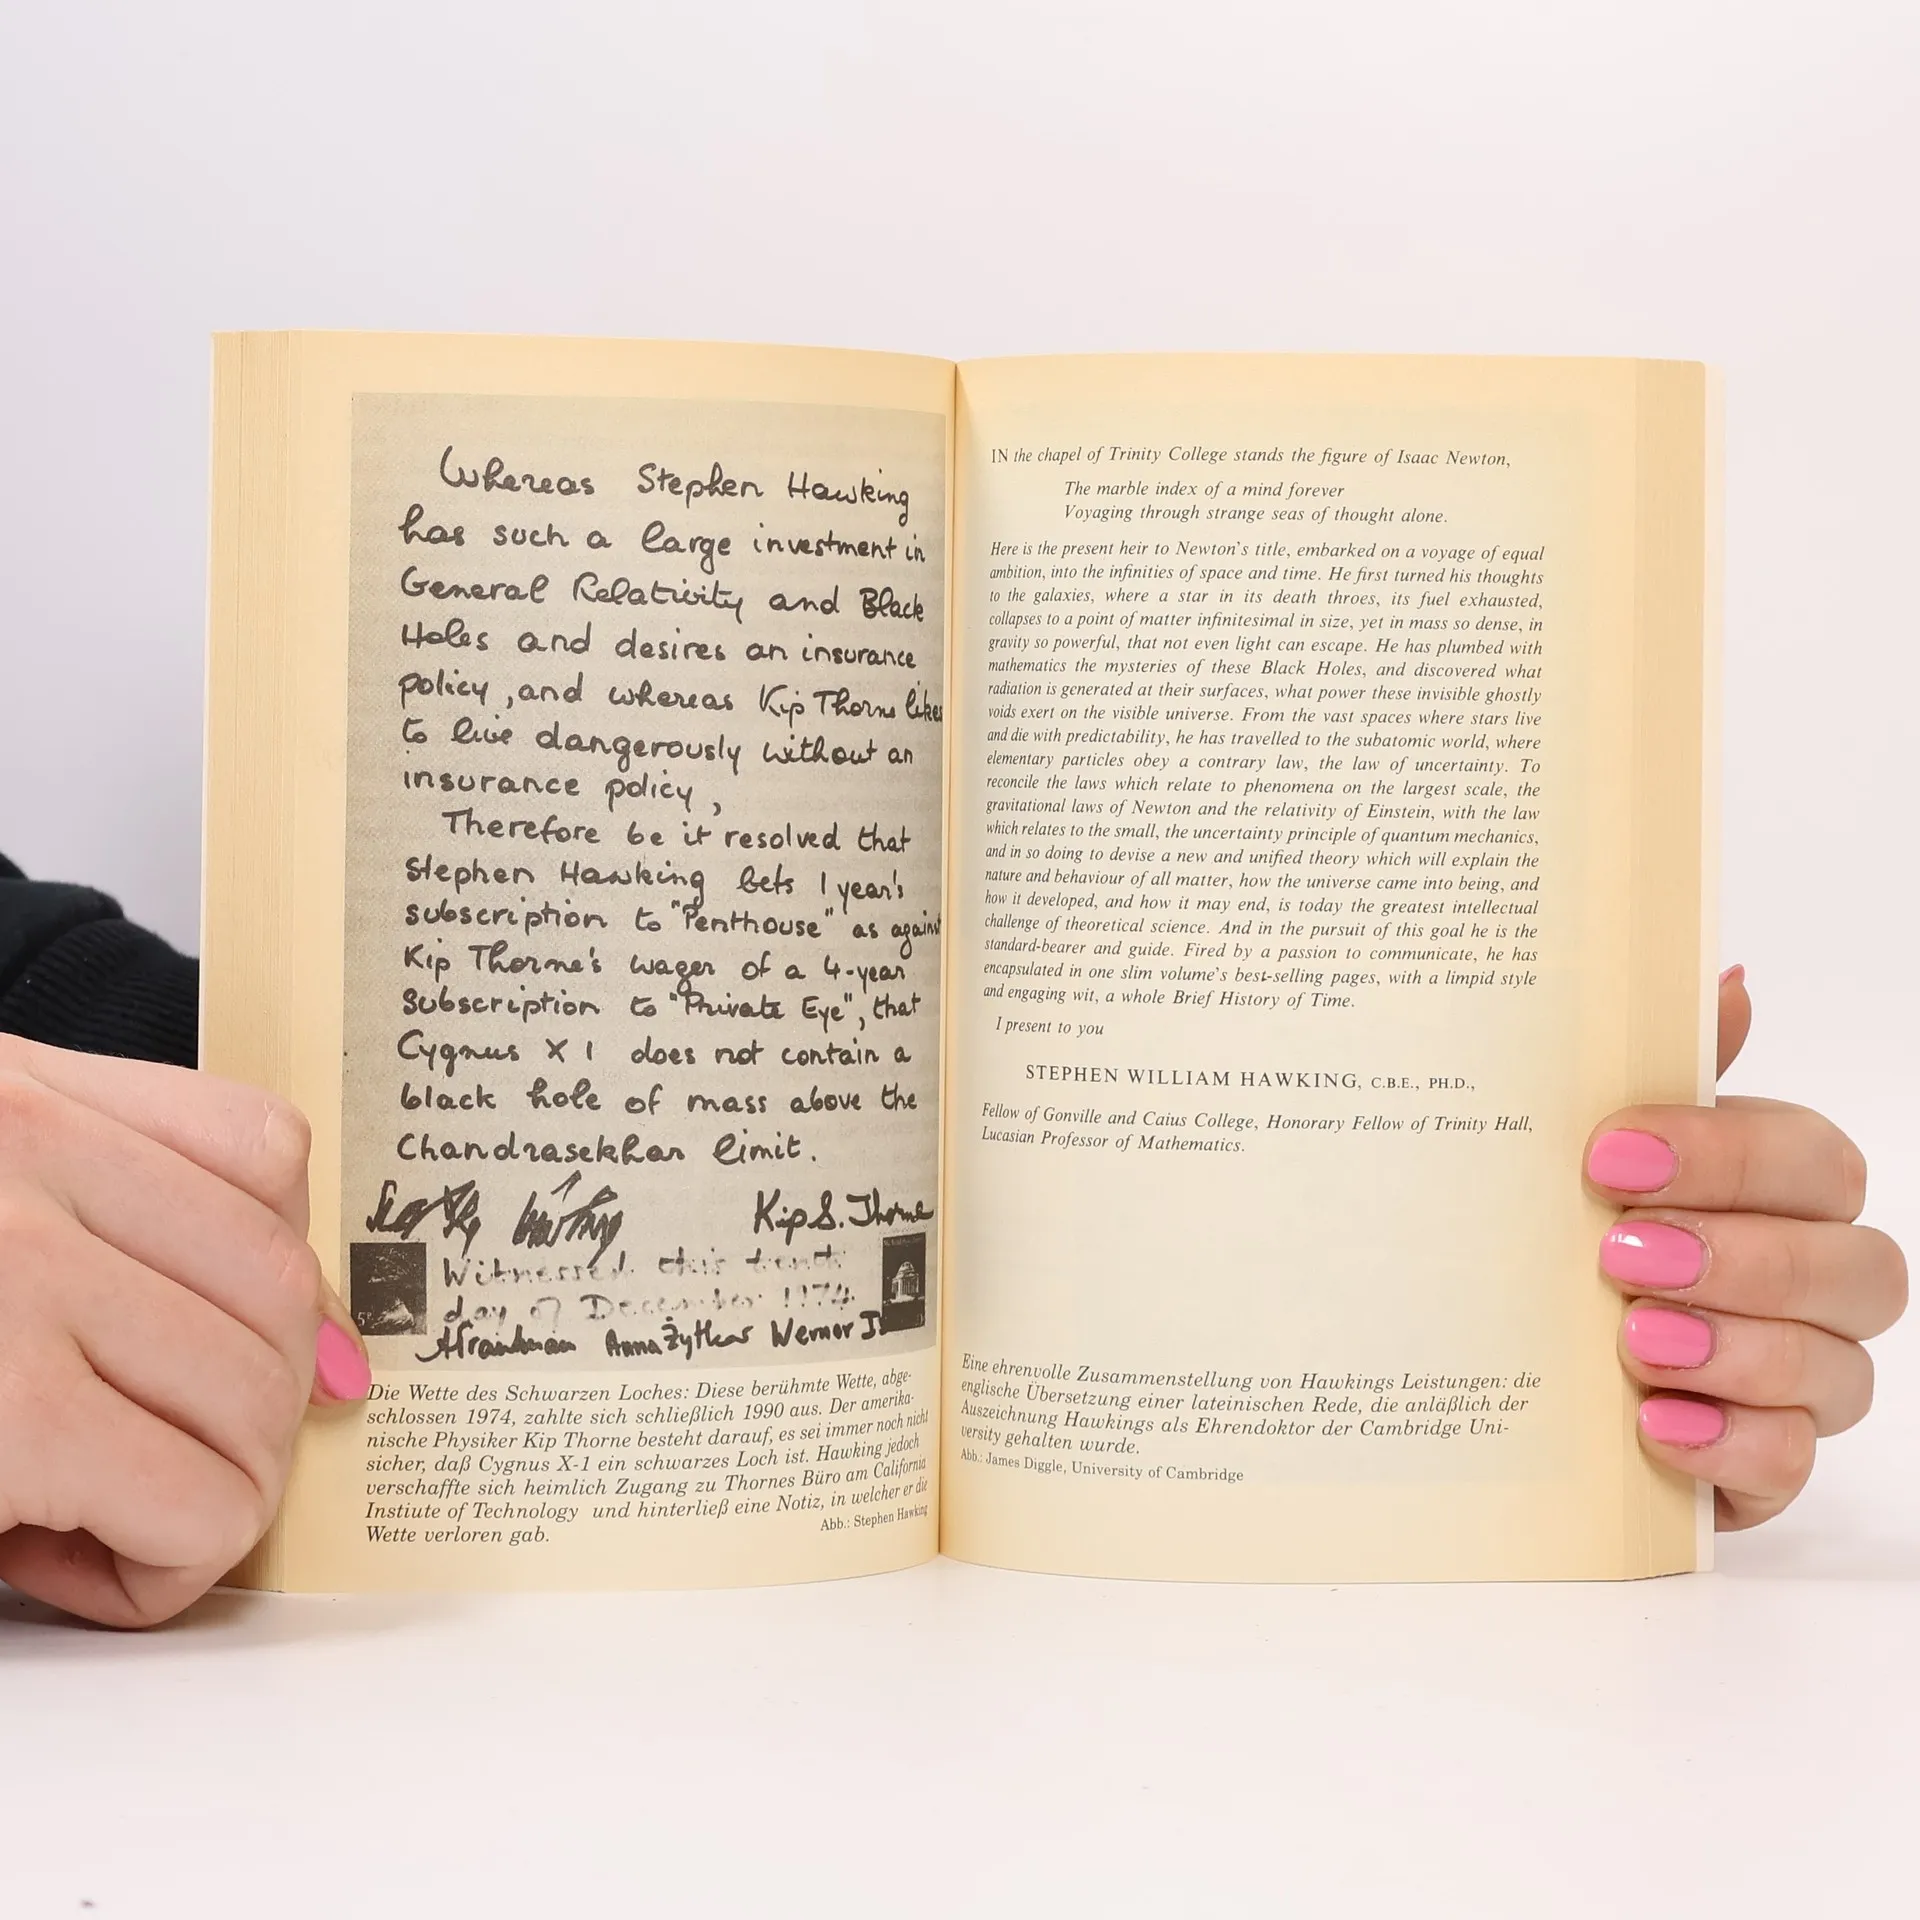 Whereas Stephen Hawking
has such a large investment in
General Relativity and Black
Holes and desires an insurance
policy, and whereas Kip Thorne likes
to live dangerously without an
insurance policy,
Therefore be it resolved that
Stephen Hawking bets 1 year's
subscription to "Penthouse" as against
Kip Thorne's wager of a 4-year
subscription to "Private Eye", that
Cygnus X 1 does not contain a
black hole of mass above the
Chandrasekhar limit.
Kip S. Thorne
Witnessed this tenth
day of December 1974
Anna Żytkow Werner
Die Wette des Schwarzen Loches: Diese berühmte Wette, abge-
schlossen 1974, zahlte sich schließlich 1990 aus. Der amerika-
nische Physiker Kip Thorne besteht darauf, es sei immer noch nicht
sicher, daß Cygnus X-1 ein schwarzes Loch ist. Hawking jedoch
verschaffte sich heimlich Zugang zu Thornes Büro am California
Instiute of Technology und hinterließ eine Notiz, in welcher er die
Wette verloren gab.
Abb.: Stephen Hawking
IN the chapel of Trinity College stands the figure of Isaac Newton,
The marble index of a mind forever
Voyaging through strange seas of thought alone.
Here is the present heir to Newton's title, embarked on a voyage of equal
ambition, into the infinities of space and time. He first turned his thoughts
to the galaxies, where a star in its death throes, its fuel exhausted,
collapses to a point of matter infinitesimal in size, yet in mass so dense, in
gravity so powerful, that not even light can escape. He has plumbed with
mathematics the mysteries of these Black Holes, and discovered what
radiation is generated at their surfaces, what power these invisible ghostly
voids exert on the visible universe. From the vast spaces where stars live
and die with predictability, he has travelled to the subatomic world, where
elementary particles obey a contrary law, the law of uncertainty. To
reconcile the laws which relate to phenomena on the largest scale, the
gravitational laws of Newton and the relativity of Einstein, with the law
which relates to the small, the uncertainty principle of quantum mechanics,
and in so doing to devise a new and unified theory which will explain the
nature and behaviour of all matter, how the universe came into being, and
how it developed, and how it may end, is today the greatest intellectual
challenge of theoretical science. And in the pursuit of this goal he is the
standard-bearer and guide. Fired by a passion to communicate, he has
encapsulated in one slim volume's best-selling pages, with a limpid style
and engaging wit, a whole Brief History of Time.
I present to you
STEPHEN WILLIAM HAWKING, C.B.E., PH.D.,
Fellow of Gonville and Caius College, Honorary Fellow of Trinity Hall,
Lucasian Professor of Mathematics.
Eine ehrenvolle Zusammenstellung von Hawkings Leistungen: die
englische Übersetzung einer lateinischen Rede, die anläßlich der
Auszeichnung Hawkings als Ehrendoktor der Cambridge Uni-
versity gehalten wurde.
Abb.: James Diggle, University of Cambridge